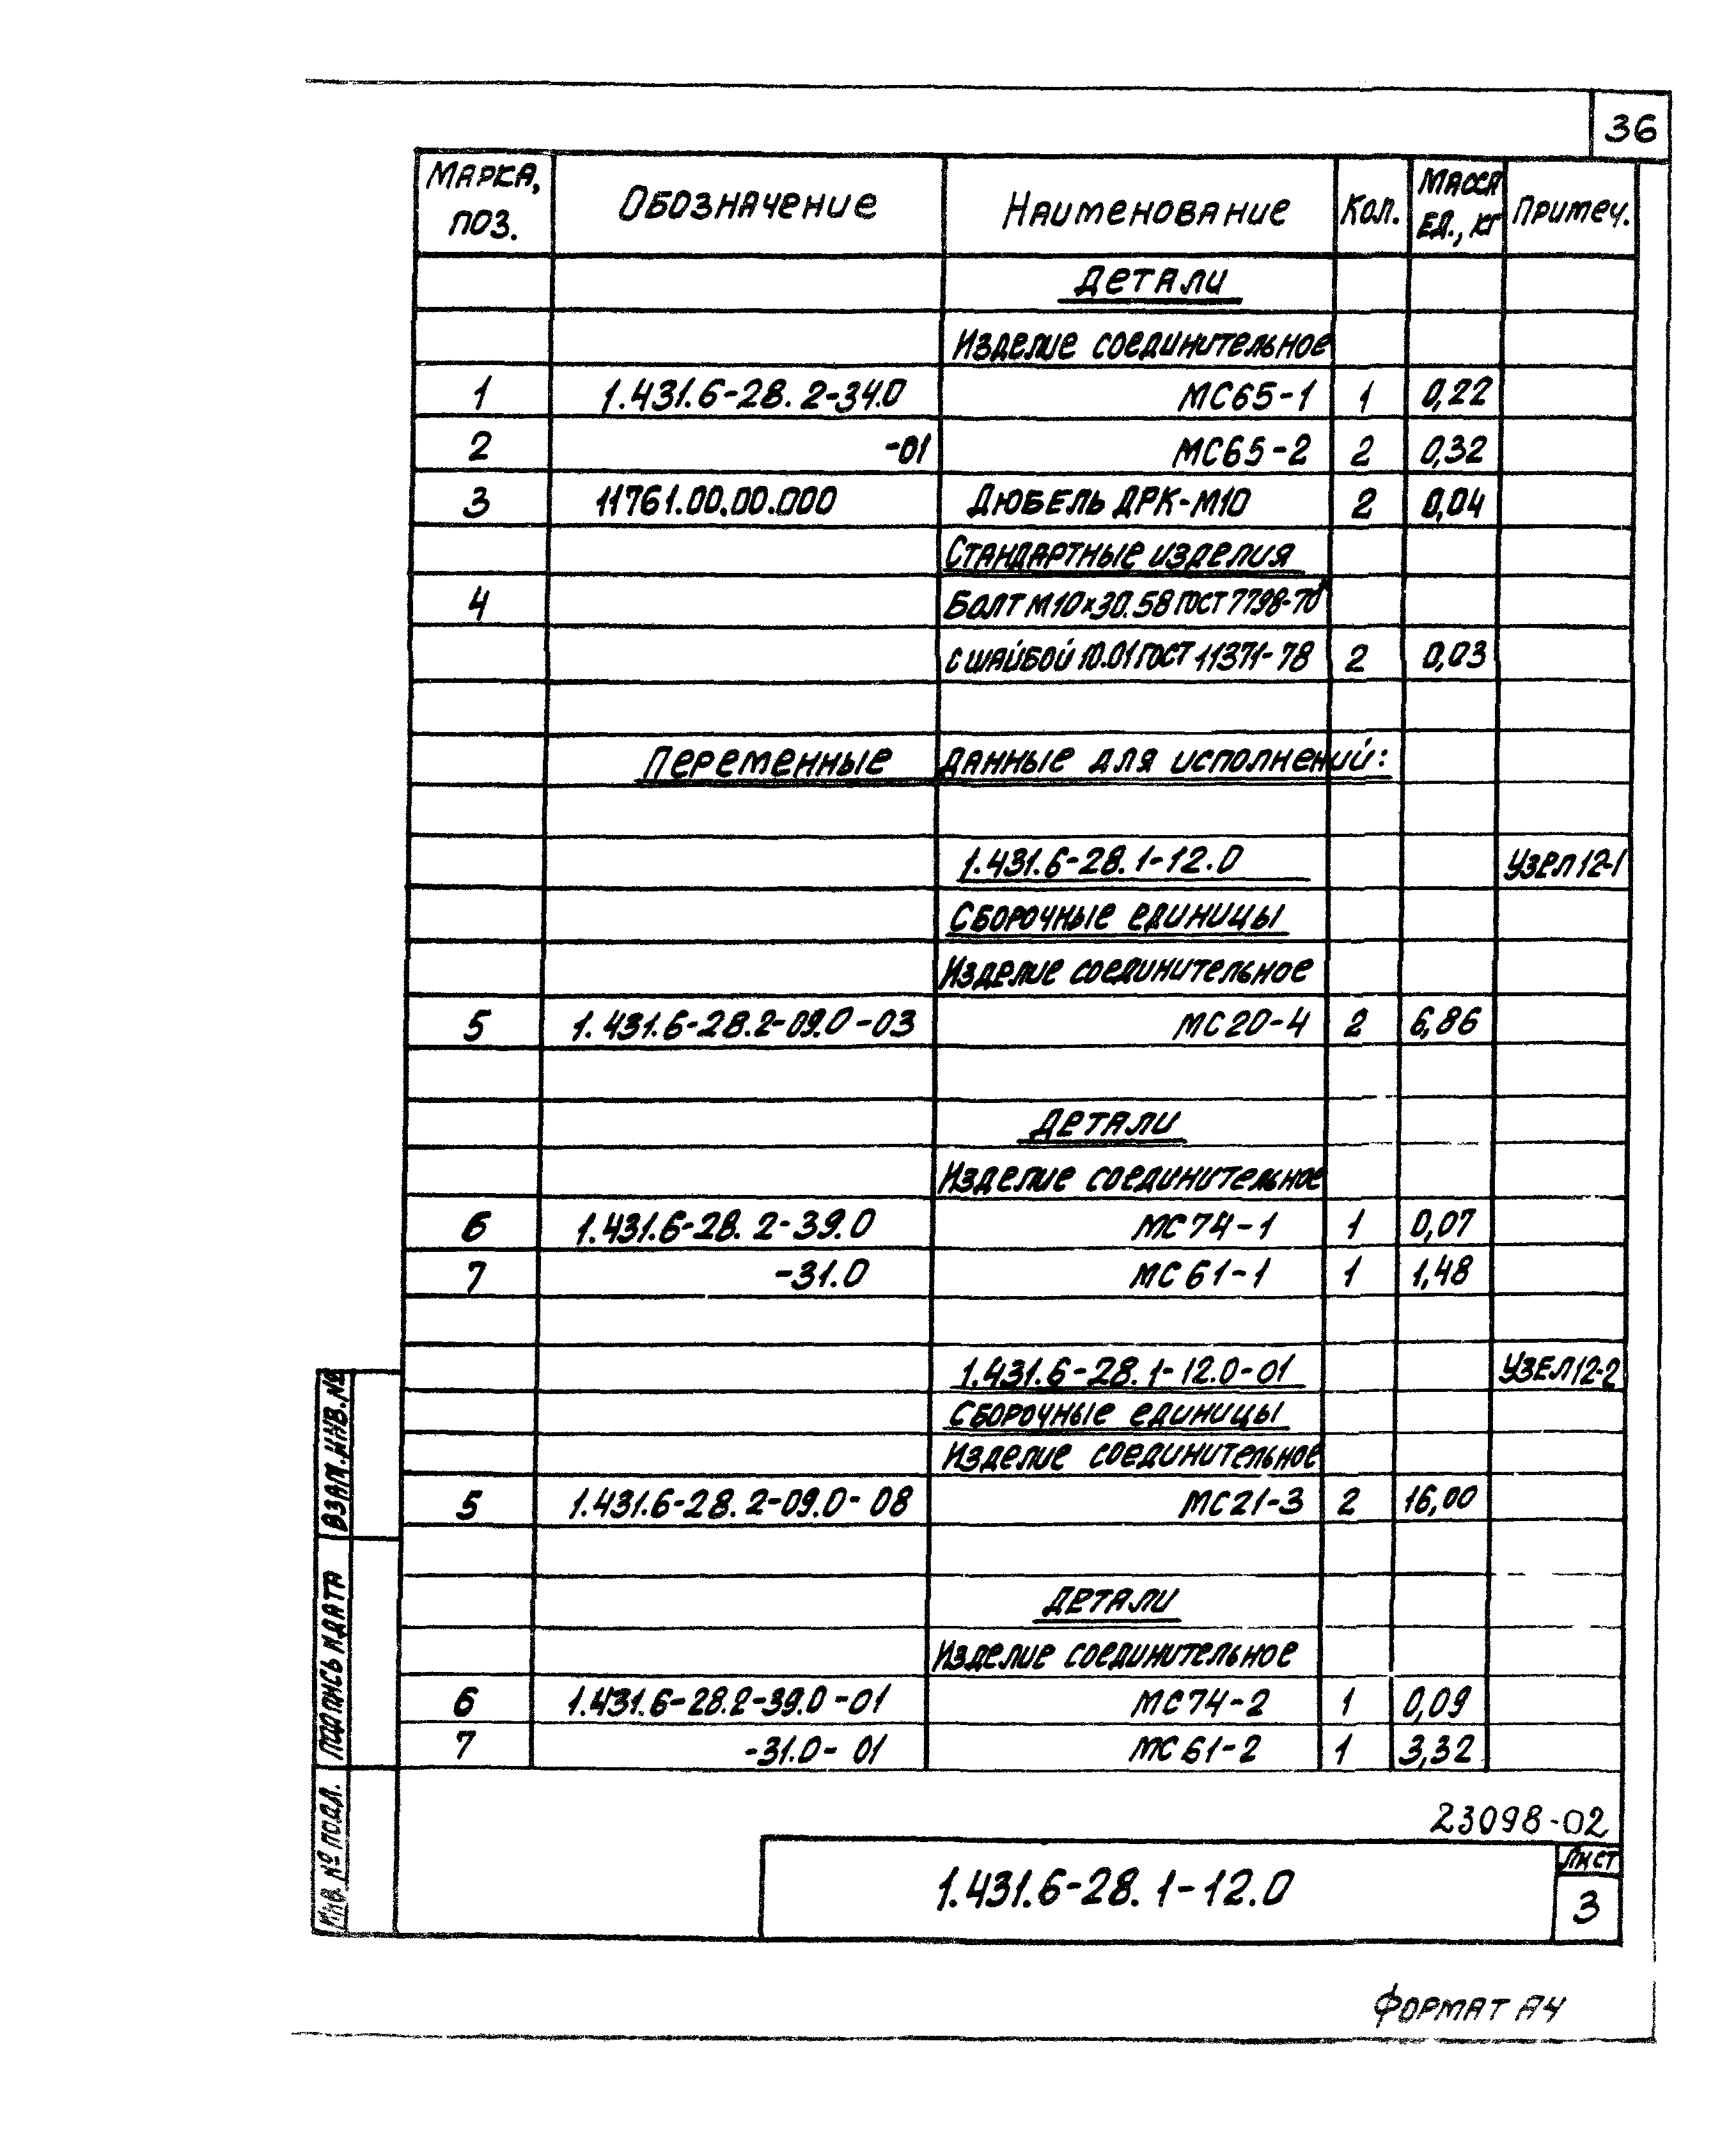 36
Марка, поз. Обозначение Наименование Кол. Масса ед., кг Примеч.
Детали
Изделие соединительное
1 1.431.6-28.2-34.0 МС65-1 1 0,22
2 -01 МС65-2 2 0,32
3 11761.00.00.000 Дюбель ДРК-М10 2 0,04
Стандартные изделия
4 Болт М10х30.58 ГОСТ 7798-70*
с шайбой 10.01 ГОСТ 11371-78 2 0,03
Переменные данные для исполнений:
1.431.6-28.1-12.0 Узел 12-1
Сборочные единицы
Изделие соединительное
5 1.431.6-28.2-09.0-03 МС20-4 2 6,86
Детали
Изделие соединительное
6 1.431.6-28.2-39.0 МС74-1 1 0,07
7 -31.0 МС61-1 1 1,48
1.431.6-28.1-12.0-01 Узел 12-2
Сборочные единицы
Изделие соединительное
5 1.431.6-28.2-09.0-08 МС21-3 2 16,00
Детали
Изделие соединительное
6 1.431.6-28.2-39.0-01 МС74-2 1 0,09
7 -31.0-01 МС61-2 1 3,32
Взам. инв. №
Подпись и дата
Инв. № подл.
23098-02
1.431.6-28.1-12.0
Лист
3
Формат А4